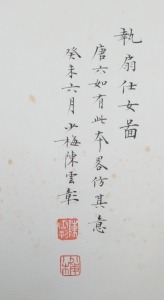 執扇仕女圖
唐六如有此本畧仿其意
癸未六月少梅陳雲彰